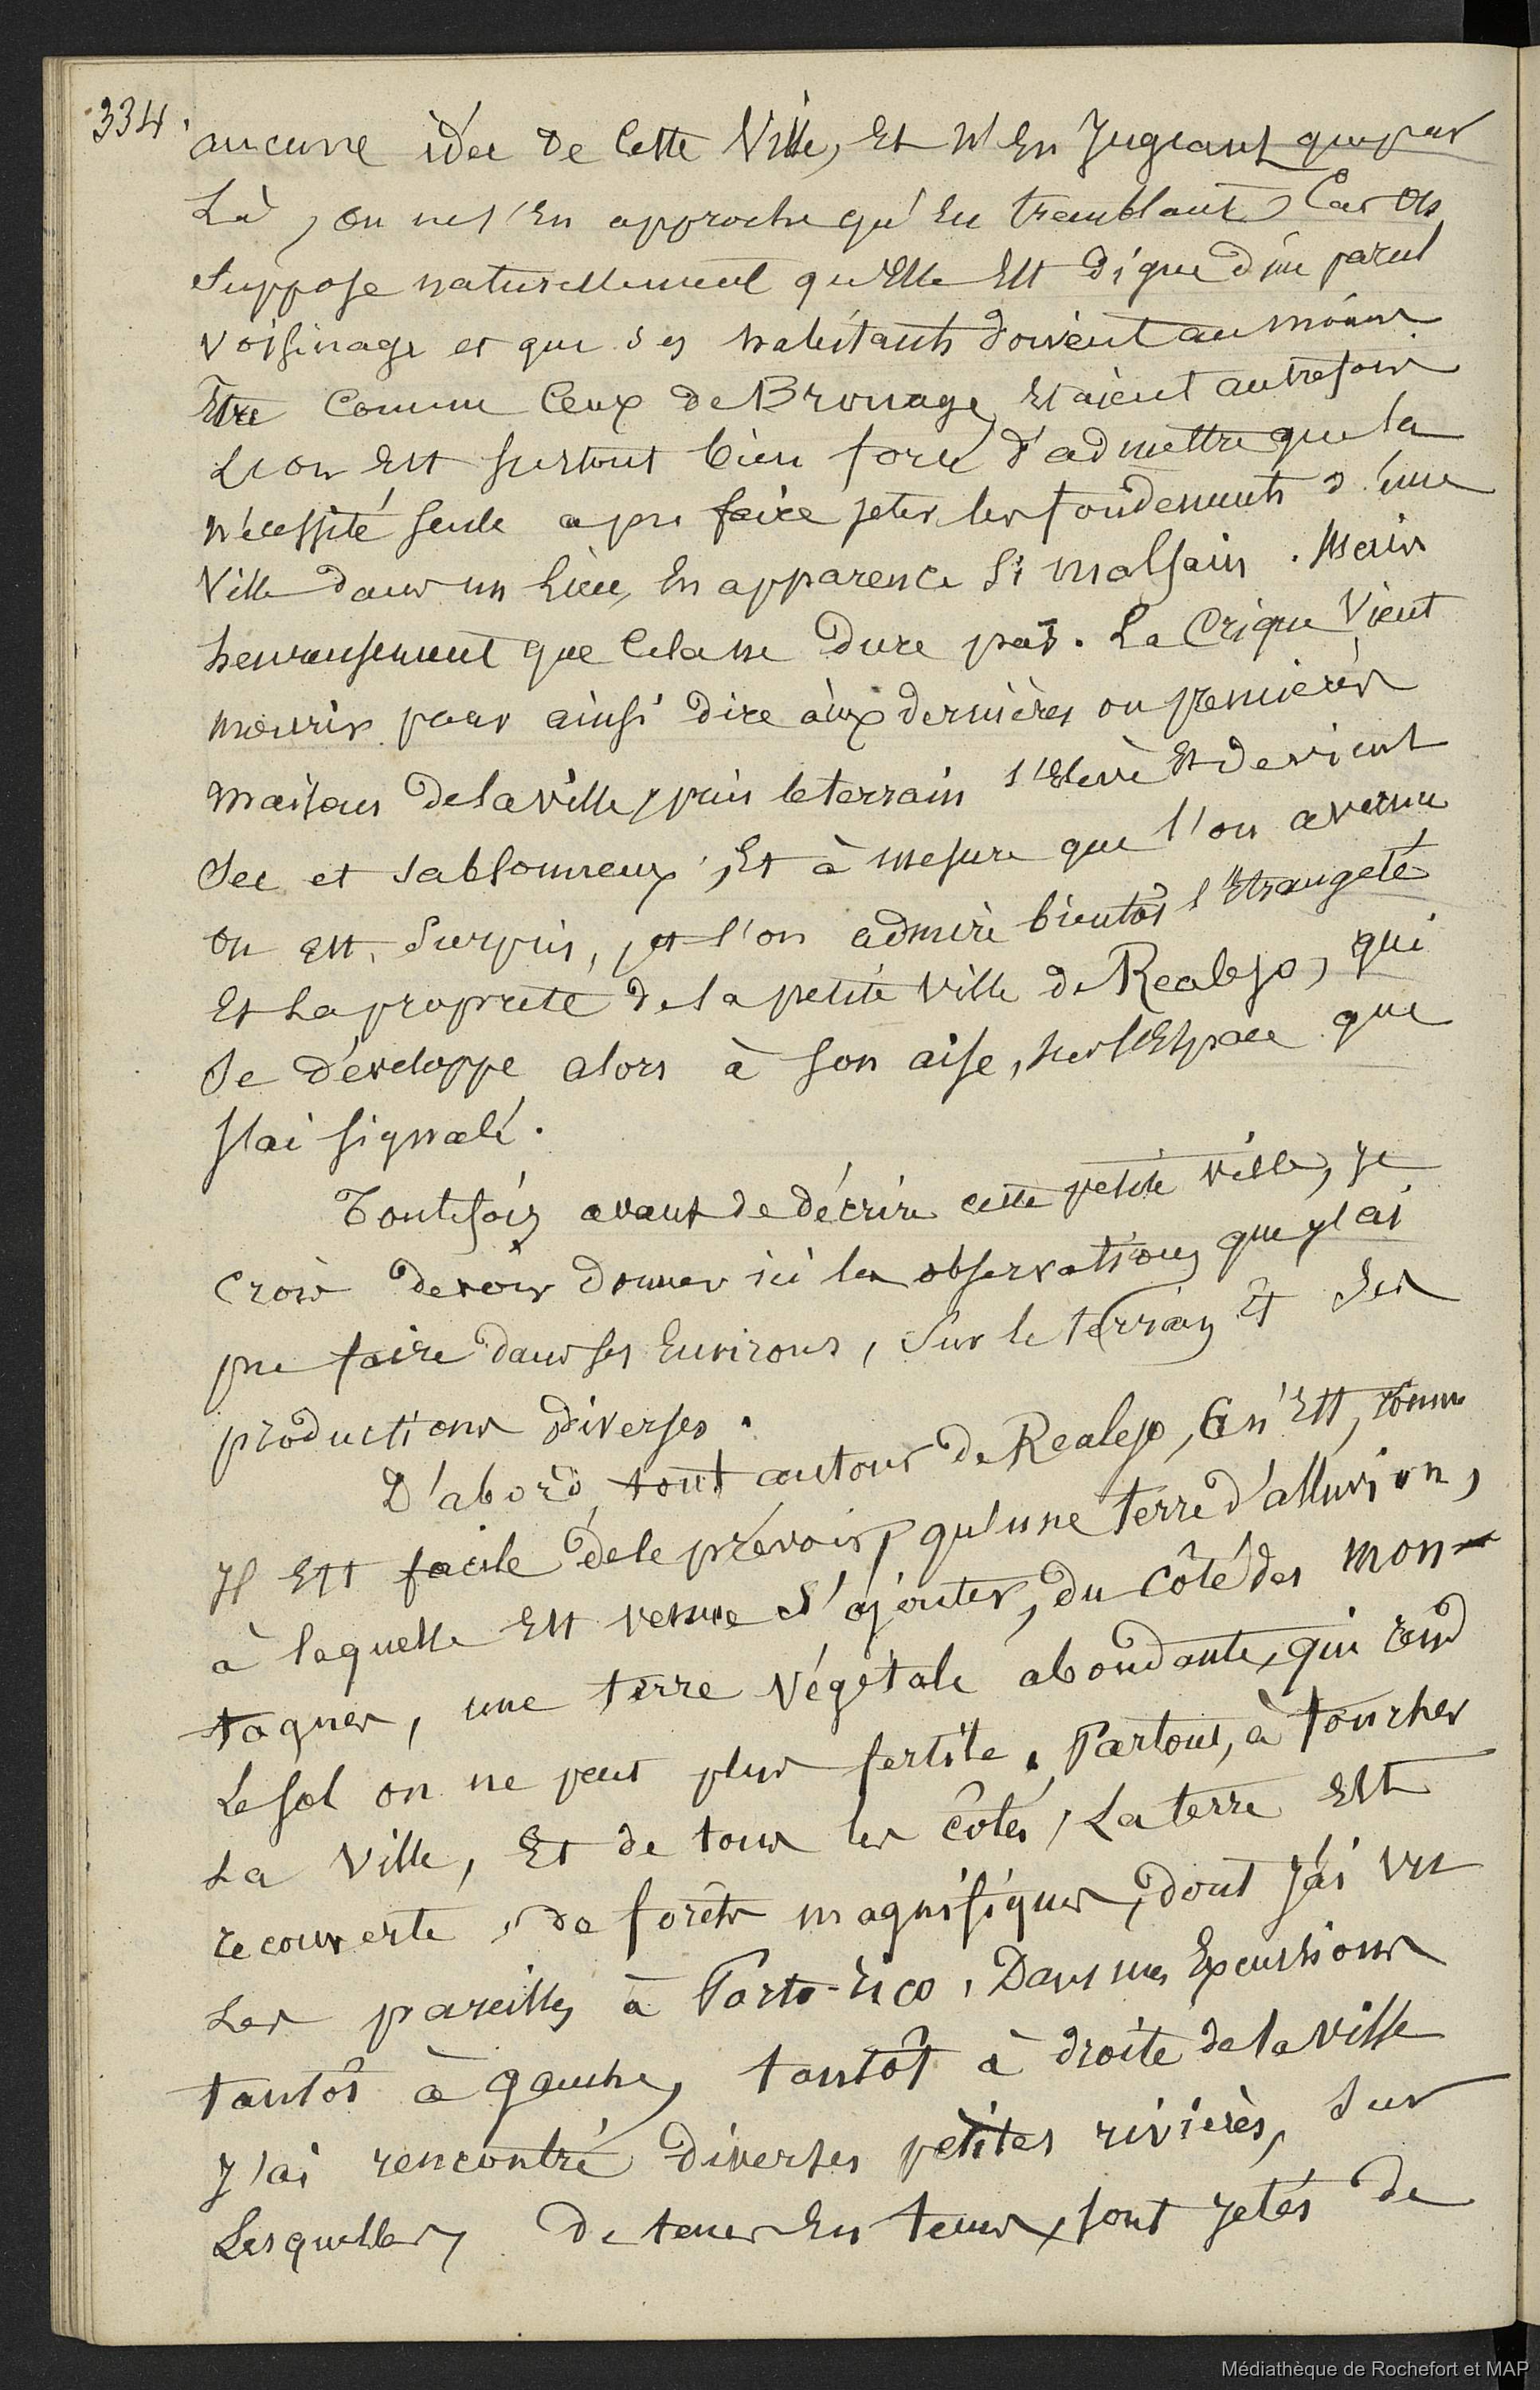 334.
aucune idée de Cette Ville, Et N'En Jugeant que par
Là, on ne s'En approche qu'En tremblant, Car On
Suppose naturellement qu'Elle Est digne d'un pareil
voisinage et que ses habitants doivent au moins
Etre Comme Ceux de Brouage, Etaient autrefois
L'on Est surtout bien forcé d'admettre que la
nécessité seule a pu faire jeter les fondements d'une
Ville dans un Lieu, En apparence Si malsain. Mais
heureusement que Cela ne dure pas. La Crique Vient
mourir pour ainsi dire aux dernières ou premières
maisons de la ville, puis le terrain s'Elève Et devient
Sec et sablonneux, Et à mesure que l'on avance
On est, Surpris, et l'on admire bientôt l'Etrangeté
Et La propreté de la petite ville de Realejo, qui
Se développe alors à son aise, sur l'Espace que
J'ai signalé.
Toutefois avant de décrire cette petite ville, Je
Crois devoir donner ici les observations que J'ai
pu faire dans ses Environs, Sur le terrain Et Ses
productions diverses.
D'abord, tout autour de Realejo, Ce n'Est, comme
Il Est facile de le prévoir, qu'une terre d'alluvion,
à laquelle Est venue s'ajouter, du côté des mon-
tagnes, une terre Végétale abondante, qui rend
Le sol on ne peut plus fertile. Partout, à toucher
La Ville, Et de tous les côtés, La terre Est
recouverte, de forêts magnifiques, dont J'ai vu
Les pareilles à Porto-Rico. Dans mes Excursions
tantôt à gauche, tantôt à droite de la ville
J'ai rencontré diverses petites rivières, Sur
Lesquelles, de temps En temps, sont jetés de
Médiathèque de Rochefort et MAP